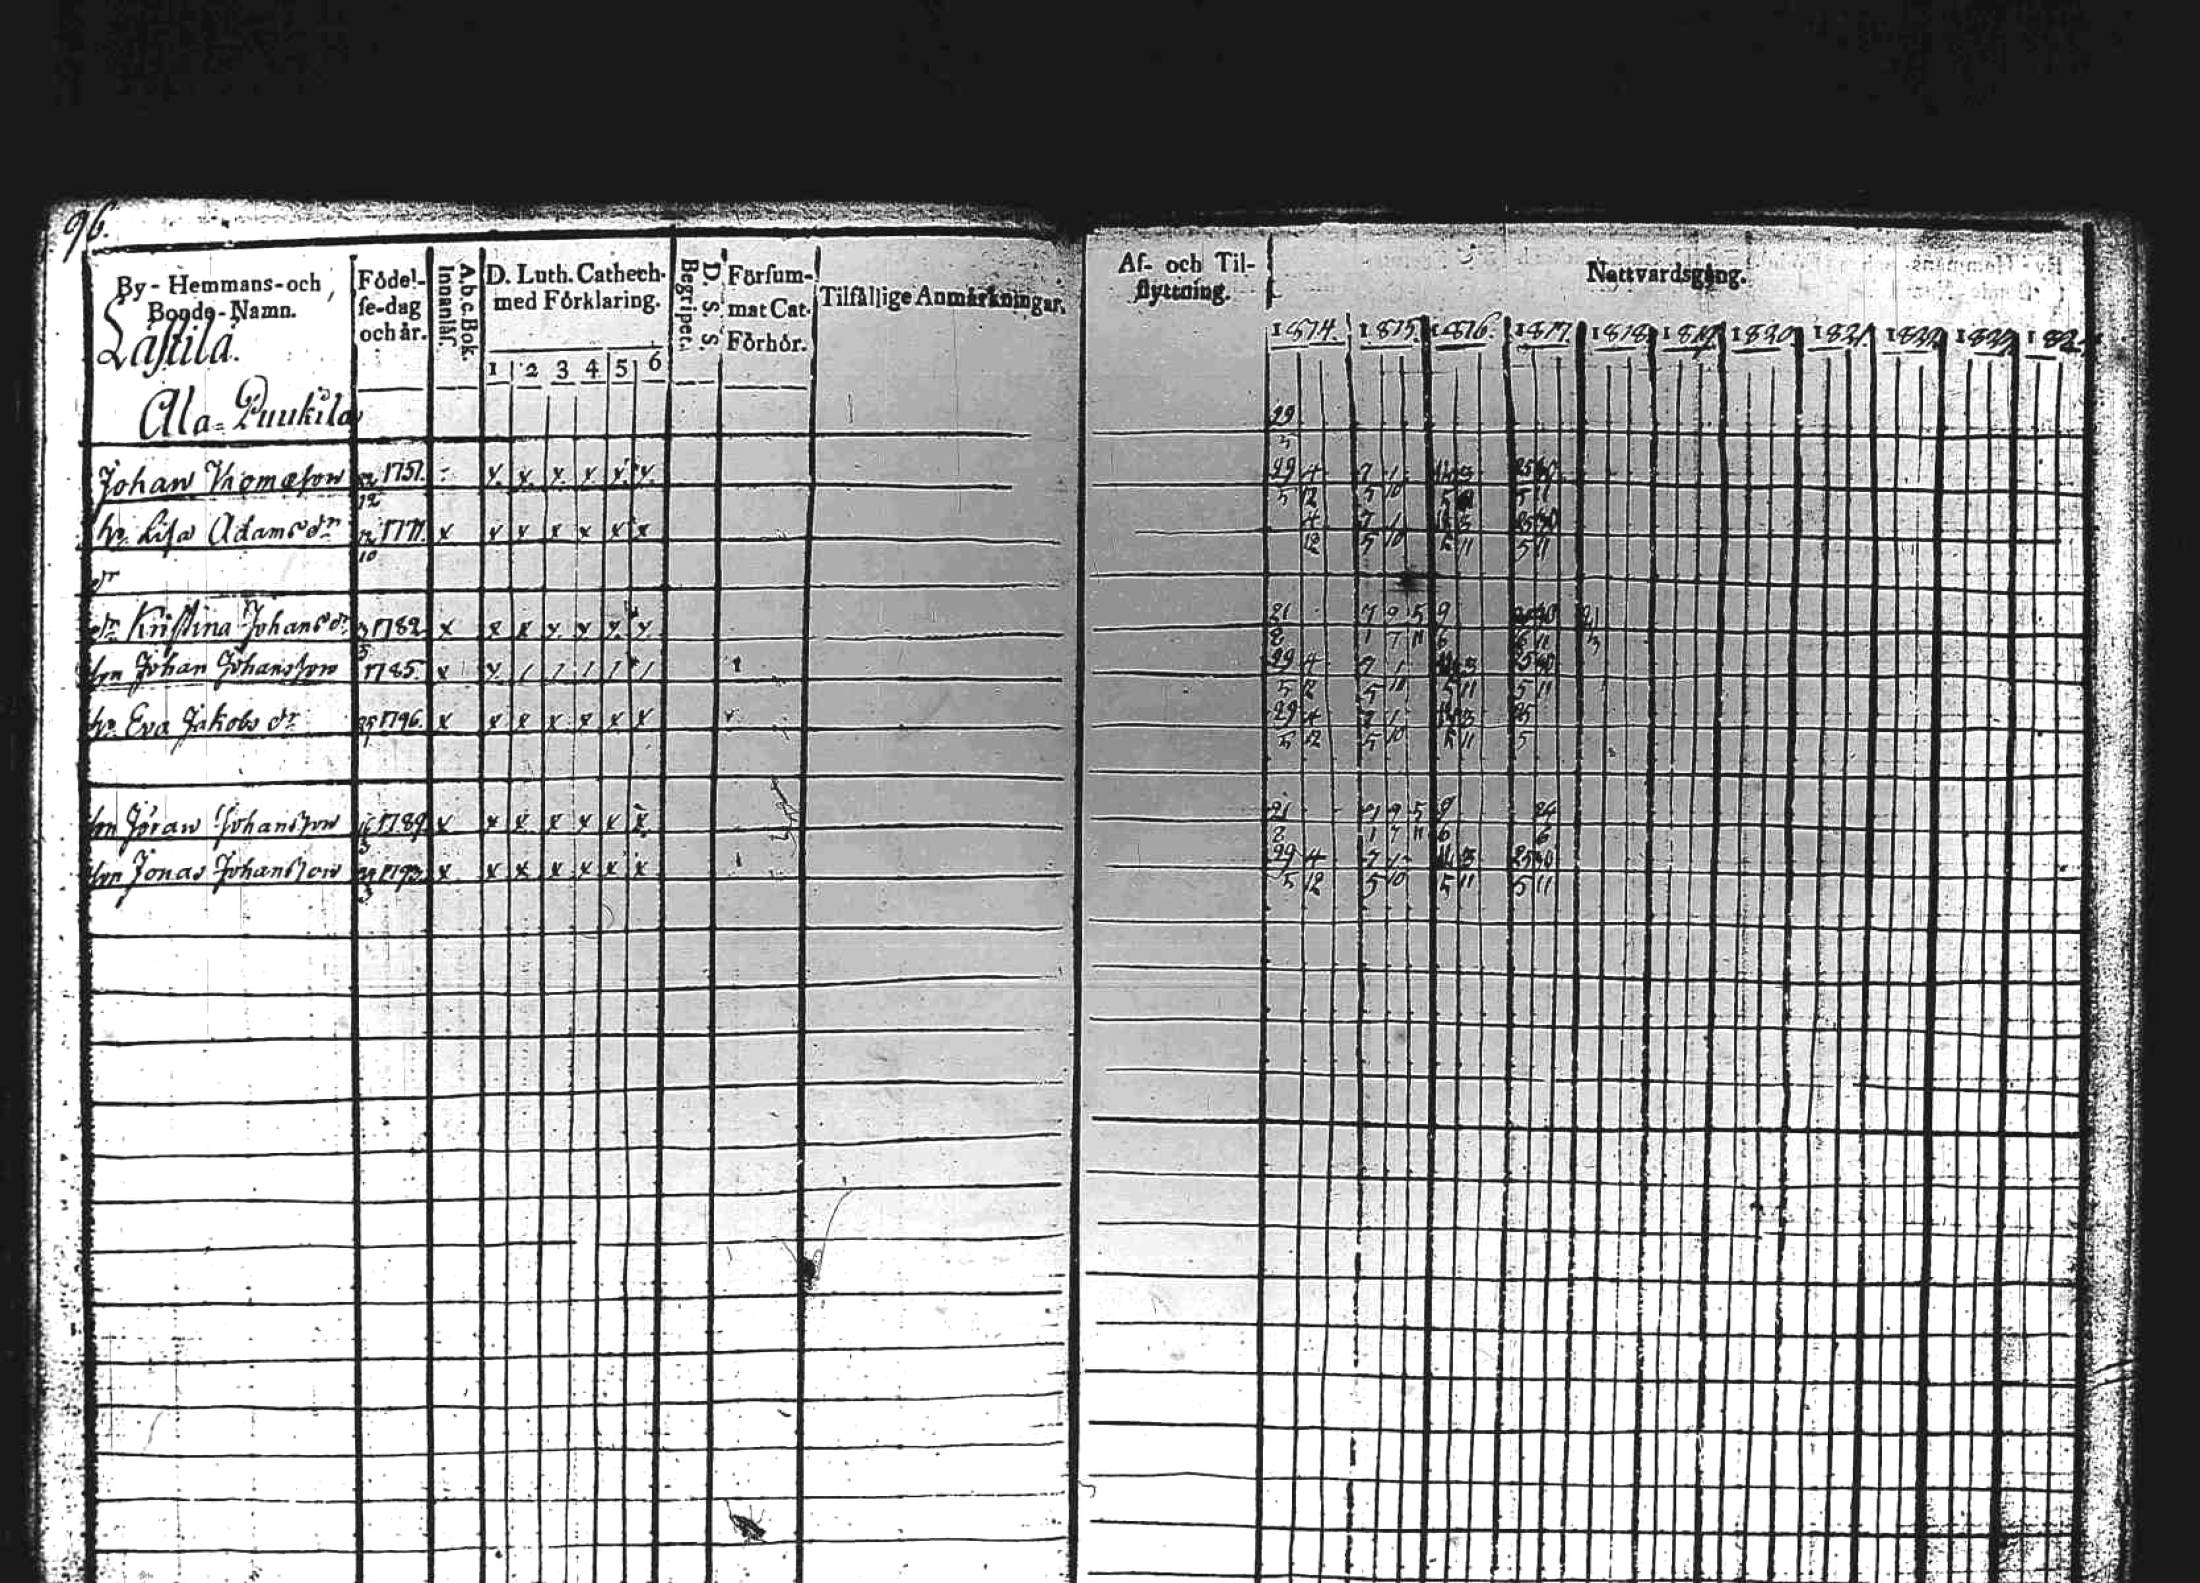 96.
By-Hemmans-och
Bonde-Namn.
Födel-
se-dag
och år.
A.b.c.Bok.
Innanläs.
D. Luth. Cathech.
med Förklaring.
1 2 3 4 5 6
D. S. S
Begriper.
Försum-
mat Cat.
Förhör.
Tilfällige Anmärkningar.
Af- och Til-
flyttning.
Nattvardsgång.
1814. 1815. 1816. 1817. 1818. 1819. 1820. 1821. 1822. 182
Lästilä.
Ala-Puukila
29
5
Johan Thomasson 1751. x x x x x x 29 4 7 1 25 30
12 5 12 5 10 5 5 11
h. Lisa Adamsdr 1771. x x x x x x x 4 7 1 25 30
10 12 5 10 5 11 5 11
dr
dr Kristina Johansdr 1782 x x x x x x x 21 7 9 5 9
5 2 1 7 11 6 6 11
son Johan Johansson 1785. x x 1 1 1 1 1 29 4 7 1 25 30
5 12 5 10 5 11 5 11
h. Eva Jakobsdr 1796. x x x x x x x 29 4 7 1 25
5 12 5 10 5 11 5
son Jöran Johansson 1789 x x x x x x x 21 9 5 9 24
3 2 1 7 11 6 6
son Jonas Johansson 1793 x x x x x x x 29 4 7 1 25 30
3 5 12 5 10 5 11 5 11